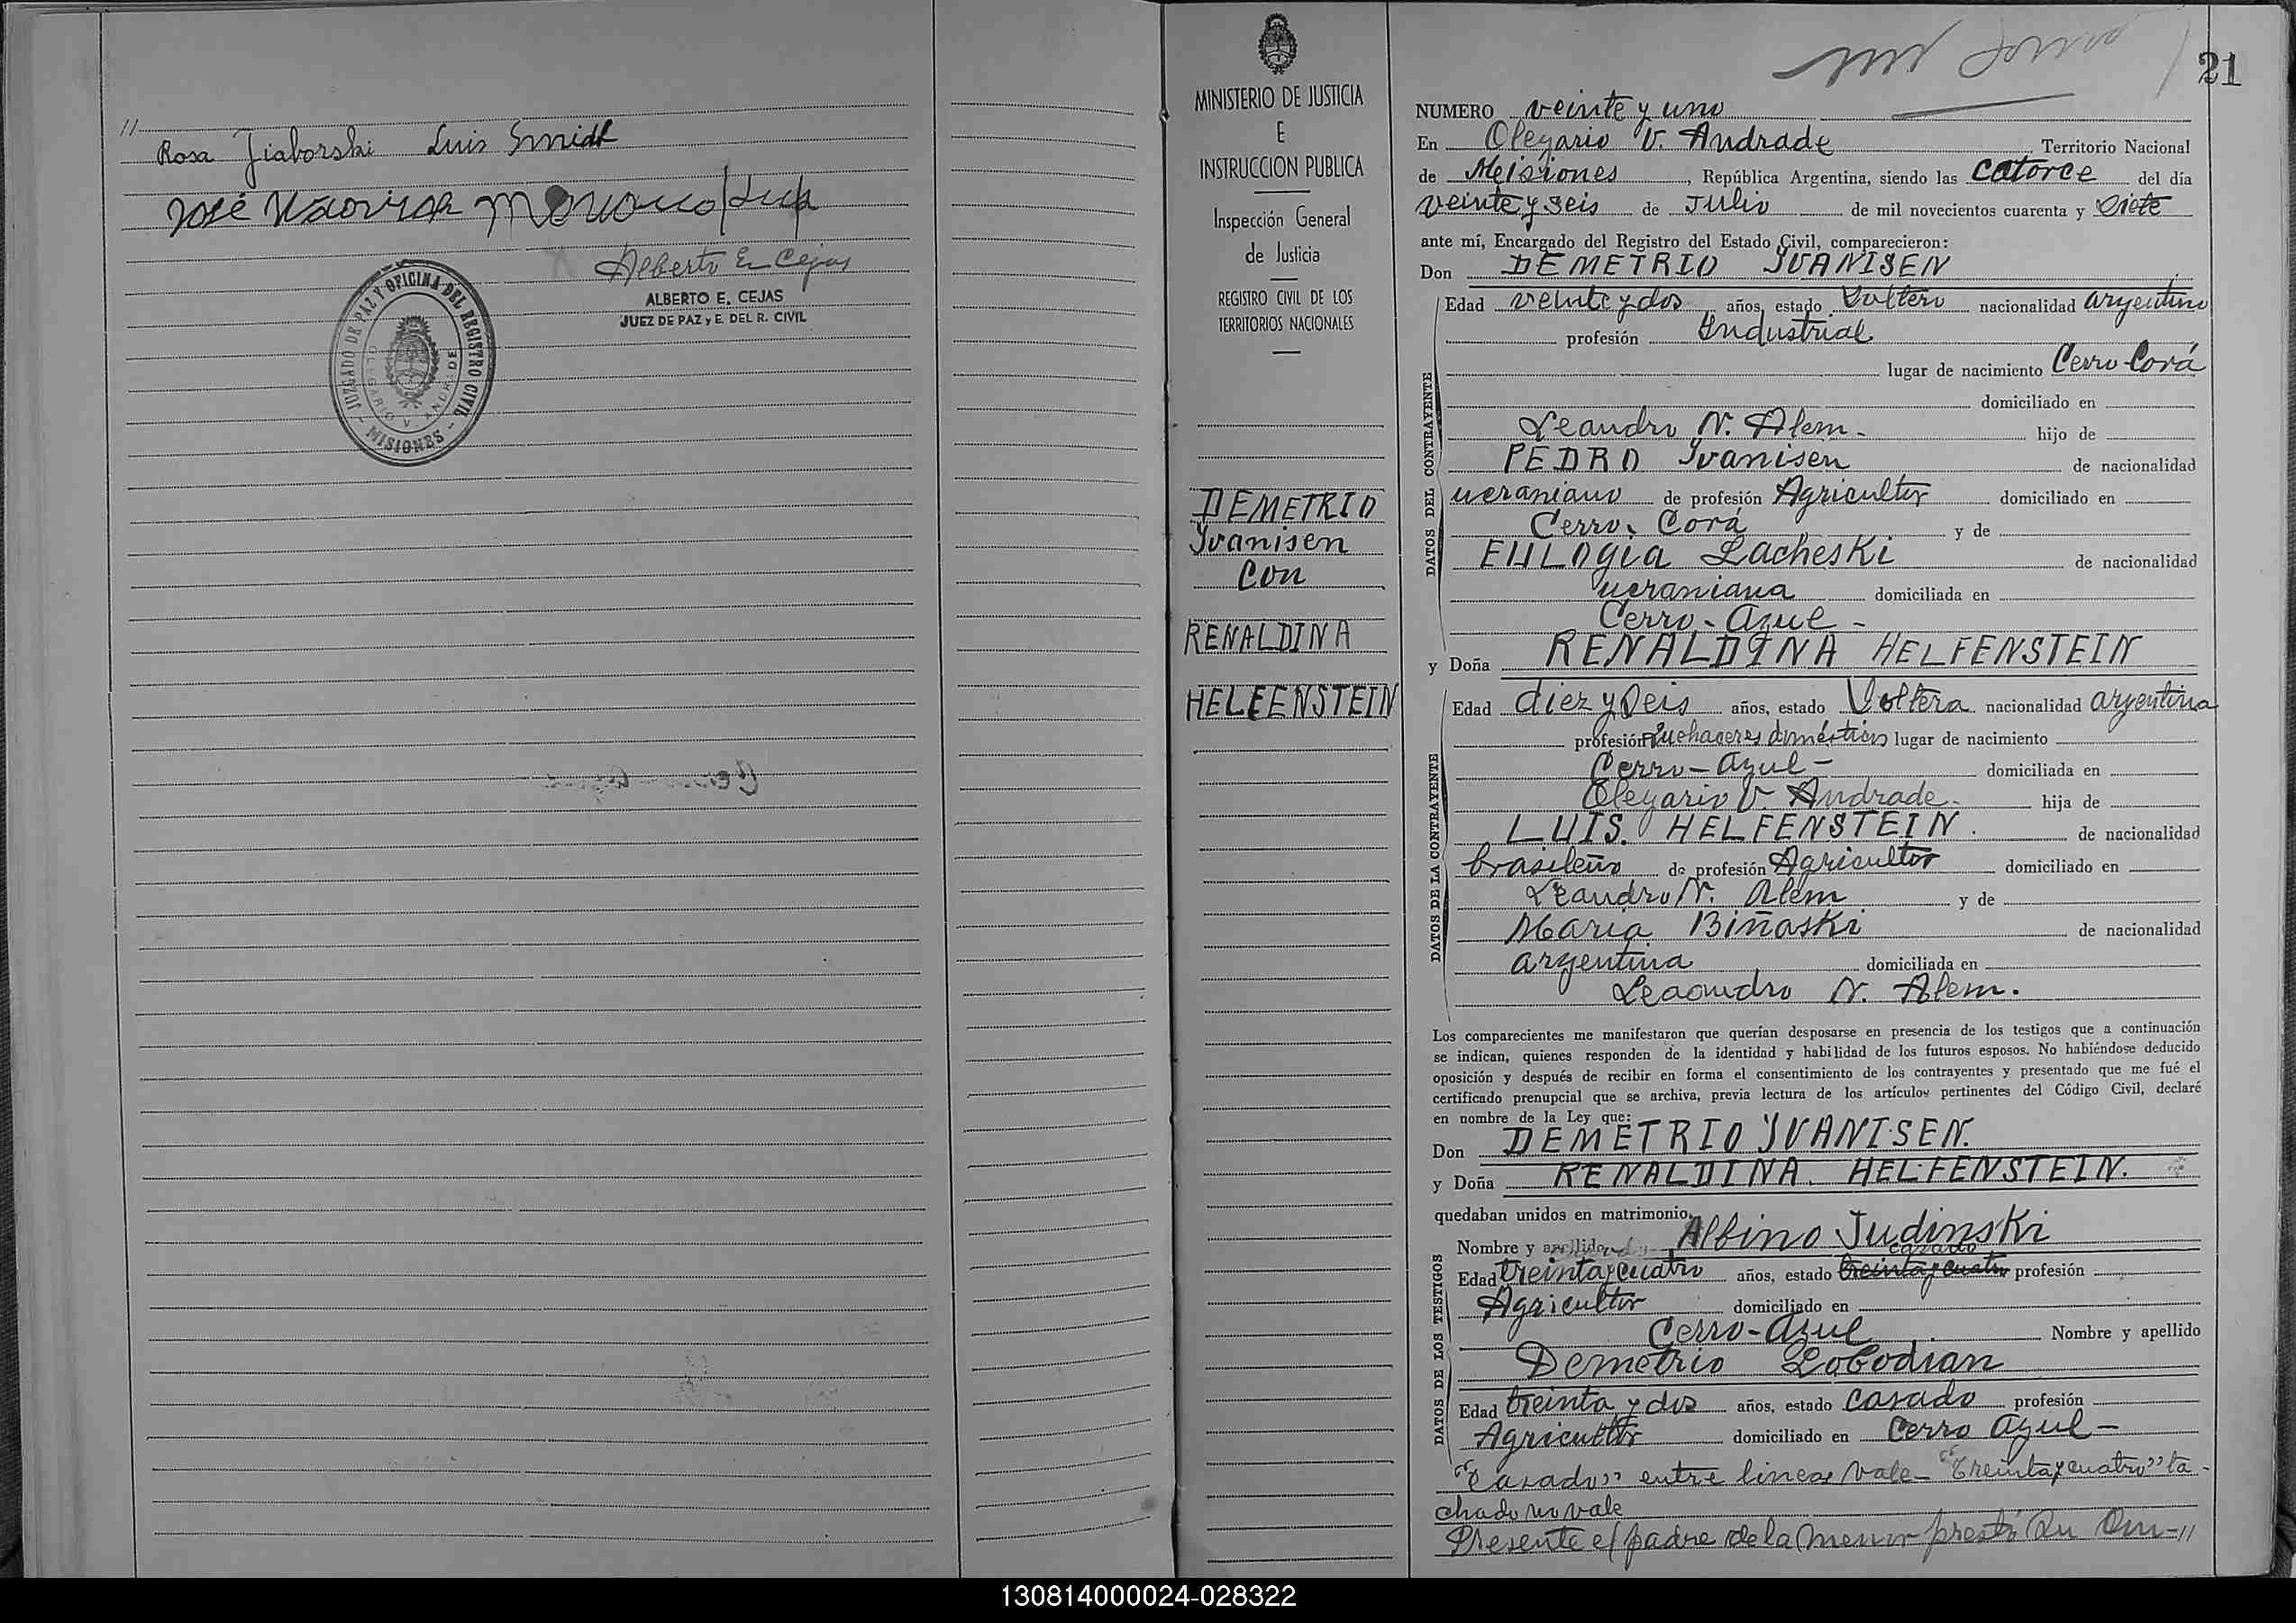 //
Rosa Luis Smidt
José
Alberto E. Cejas
ALBERTO E. CEJAS
JUEZ DE PAZ y E. DEL R. CIVIL
JUZGADO DE PAZ Y OFICINA DEL REGISTRO CIVIL
OLEGARIO V. ANDRADE
- MISIONES -
MINISTERIO DE JUSTICIA
E
INSTRUCCION PUBLICA
Inspección General
de Justicia
REGISTRO CIVIL DE LOS
TERRITORIOS NACIONALES
DEMETRIO
Yvanisen
con
RENALDINA
HELFENSTEIN
21
NUMERO veinte y uno
En Olegario V. Andrade Territorio Nacional
de Misiones, República Argentina, siendo las catorce del día
veinte y seis de Julio de mil novecientos cuarenta y siete
ante mí, Encargado del Registro del Estado Civil, comparecieron:
Don DEMETRIO YVANISEN
DATOS DEL CONTRAYENTE
Edad veinte y dos años, estado Soltero nacionalidad argentino
profesión Industrial
lugar de nacimiento Cerro Corá
domiciliado en
Leandro N. Alem - hijo de
PEDRO Yvanisen de nacionalidad
ucraniano de profesión Agricultor domiciliado en
Cerro Corá y de
EULOGIA Lacheski de nacionalidad
ucraniana domiciliada en
Cerro - Azul -
y Doña RENALDINA HELFENSTEIN
DATOS DE LA CONTRAYENTE
Edad diez y seis años, estado Soltera nacionalidad argentina
profesión Quehaceres domésticos lugar de nacimiento
Cerro - Azul - domiciliada en
Olegario V. Andrade - hija de
LUIS HELFENSTEIN. de nacionalidad
brasileño de profesión Agricultor domiciliado en
Leandro N. Alem y de
María Biñaski de nacionalidad
argentina domiciliada en
Leaoundro N. Alem.
Los comparecientes me manifestaron que querían desposarse en presencia de los testigos que a continuación
se indican, quienes responden de la identidad y habilidad de los futuros esposos. No habiéndose deducido
oposición y después de recibir en forma el consentimiento de los contrayentes y presentado que me fué el
certificado prenupcial que se archiva, previa lectura de los artículos pertinentes del Código Civil, declaré
en nombre de la Ley que:
Don DEMETRIO YVANISEN.
y Doña RENALDINA HELFENSTEIN.
quedaban unidos en matrimonio.
DATOS DE LOS TESTIGOS
Nombre y apellido Albino Judinski
casado
Edad treinta y cuatro años, estado treinta y cuatro profesión
Agricultor domiciliado en
Cerro - Azul Nombre y apellido
Demetrio Lobodian
Edad treinta y dos años, estado casado profesión
Agricultor domiciliado en Cerro Azul -
"Casado" entre lineas vale - "treinta y cuatro" ta-
chado no vale
Presente el padre de la menor prestó su con-//
130814000024-028322